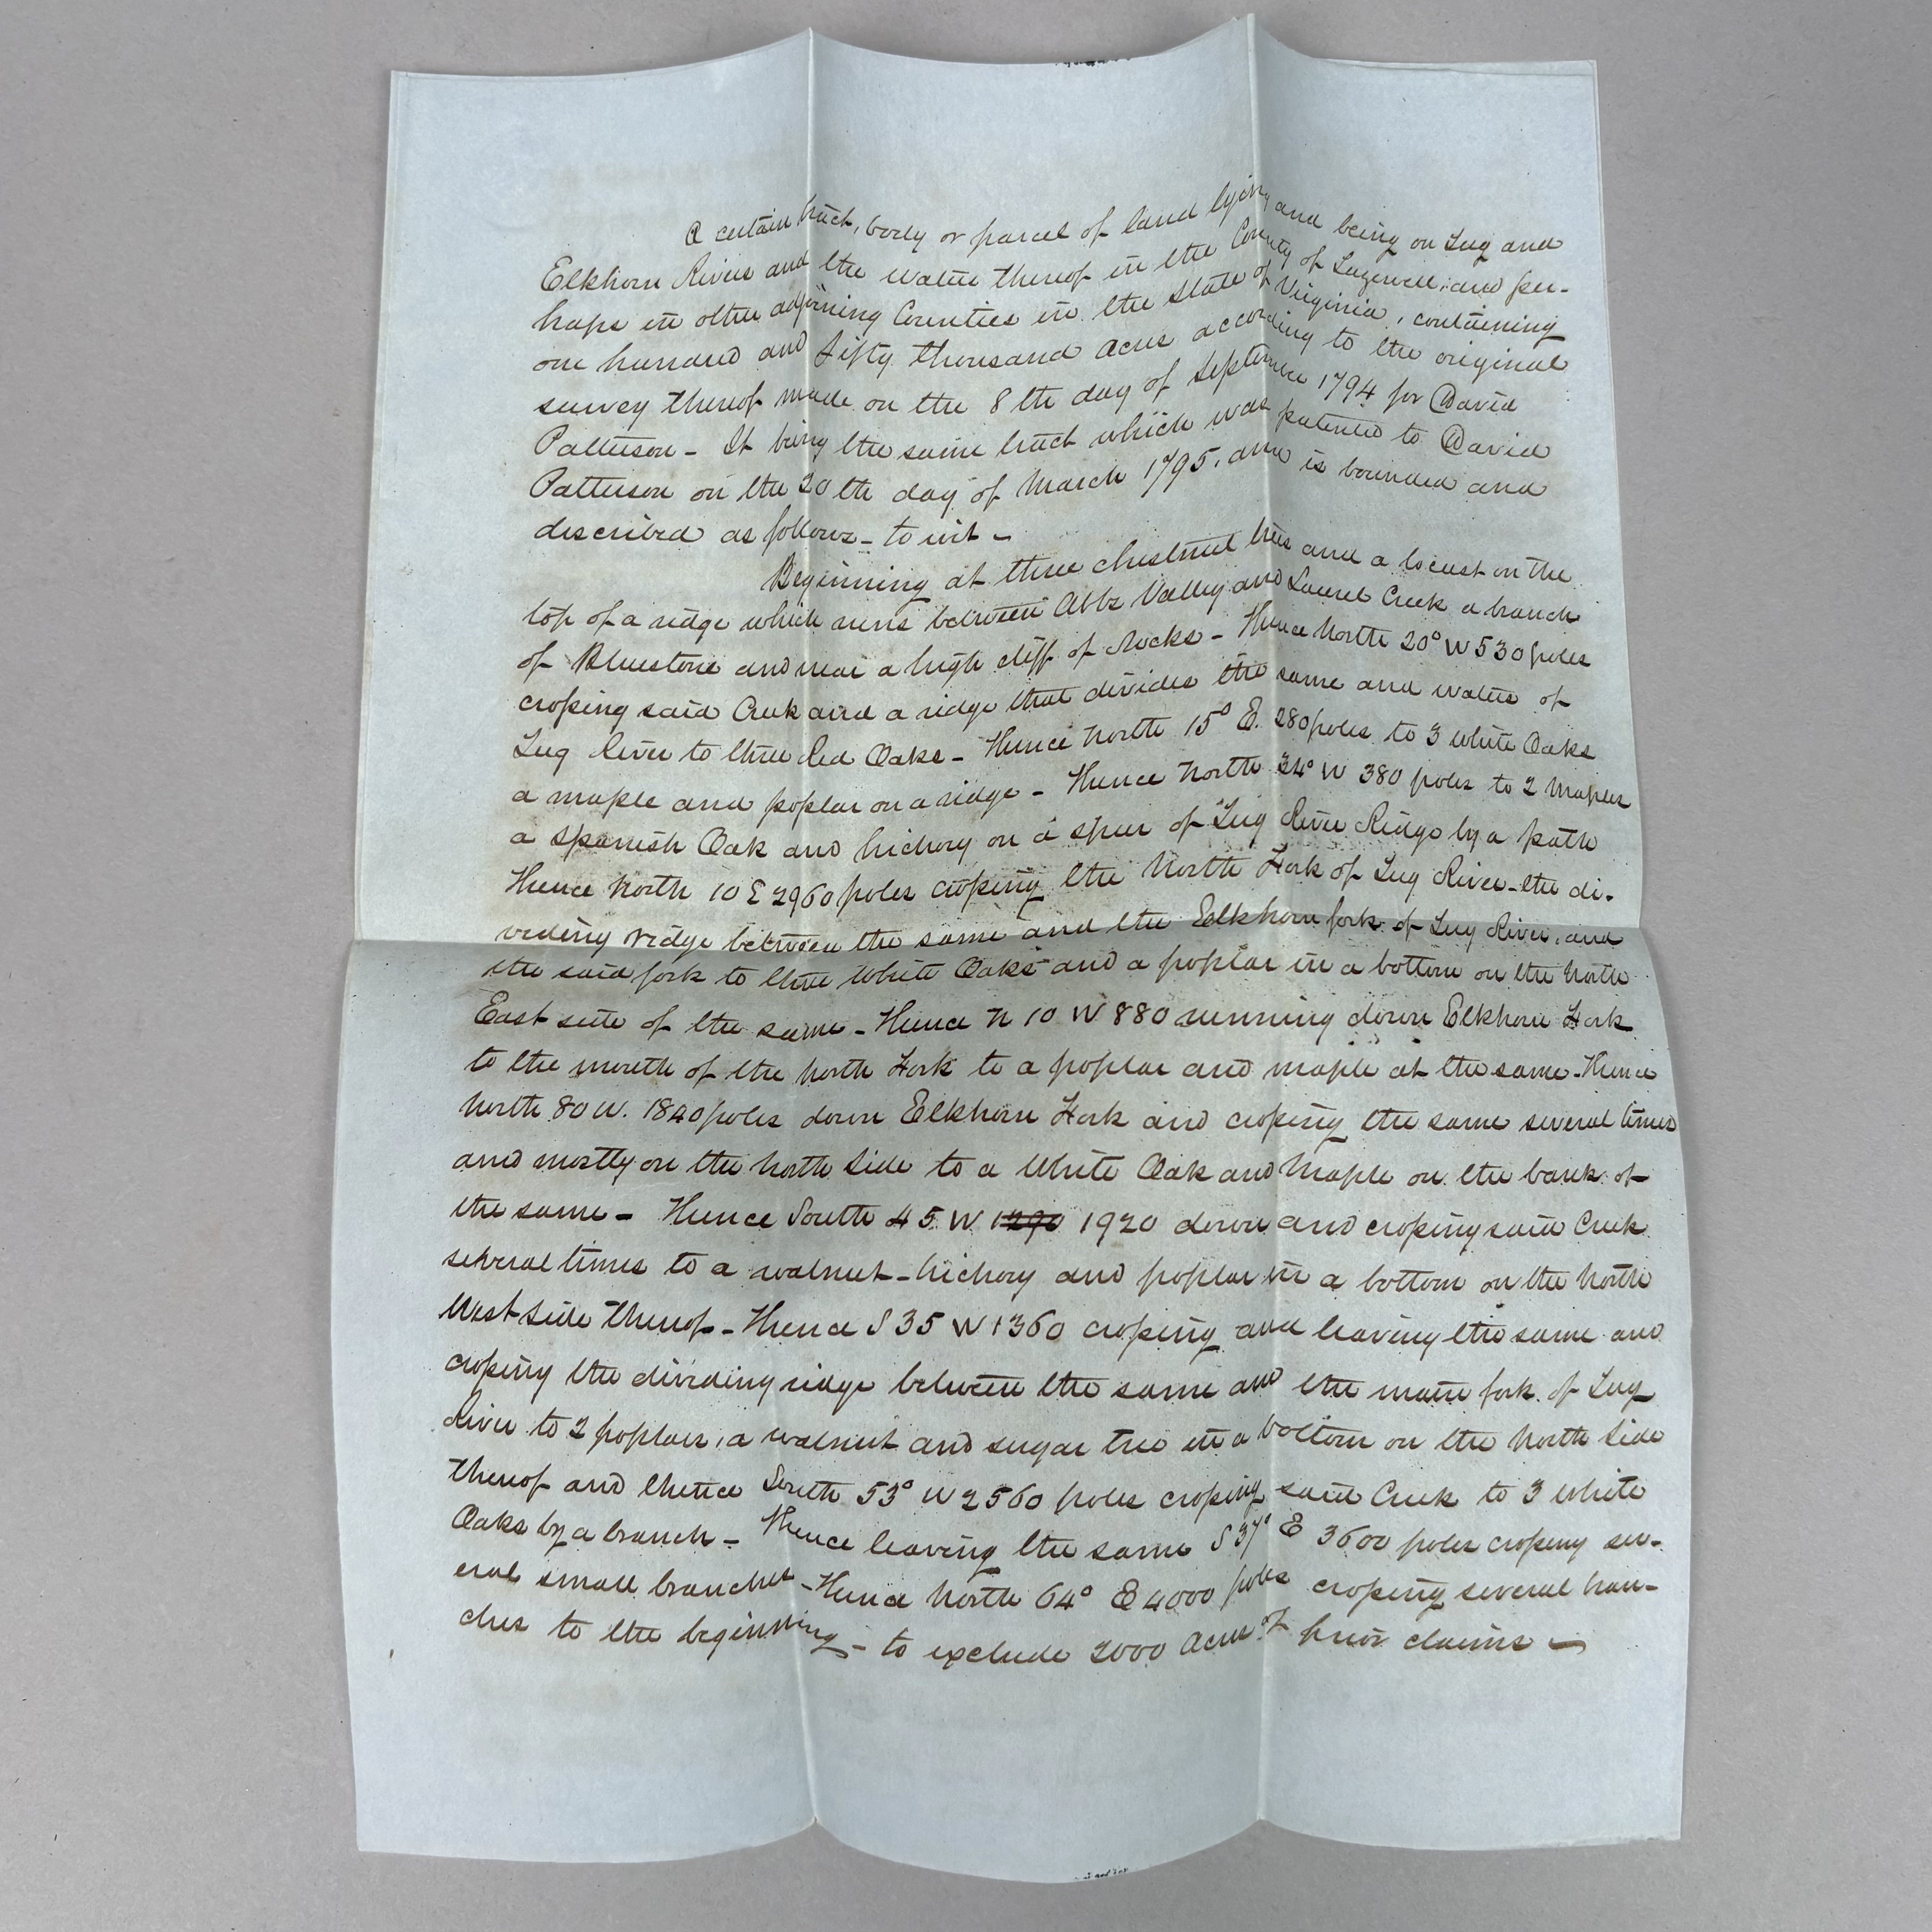 A certain tract, body or parcel of land lying and being on Tug and
Elkhorn Rivers and the waters thereof in the County of Tazewell, and per-
haps in other adjoining Counties in the State of Virginia, containing
one hundred and fifty thousand acres according to the original
survey thereof made on the 8th day of September 1794 for David
Patterson - It being the same tract which was patented to David
Patterson on the 20th day of March 1795, and is bounded and
described as follows - to wit -
Beginning at three chestnut trees and a locust on the
top of a ridge which runs between Abbs Valley and Laurel Creek a branch
of Bluestone and near a high cliff of Rocks - Thence North 20° W 530 poles
crossing said Creek and a ridge that divides the same and waters of
Tug River to three Red Oaks - Thence North 15° E. 280 poles to 3 white Oaks
a maple and poplar on a ridge - Thence North 34° W 380 poles to 2 Maples
a Spanish Oak and hickory on a spur of Tug River Ridge by a path
Thence North 10 E 2960 poles crossing the North Fork of Tug River - the di-
viding ridge between the same and the Elkhorn fork of Tug River, and
the said fork to three White Oaks and a poplar in a bottom on the North
East side of the same - Thence N 10 W 880 running down Elkhorn Fork
to the mouth of the North Fork to a poplar and maple at the same - Thence
North 80 W. 1840 poles down Elkhorn Fork and crossing the same several times
and mostly on the North Side to a White Oak and Maple on the bank of
the same - Thence South 45 W 1290 1920 down and crossing said Creek
several times to a walnut - hickory and poplar in a bottom on the North
West Side thereof - Thence S 35 W 1360 crossing and leaving the same and
crossing the dividing ridge between the same and the main fork of Tug
River to 2 poplars, a walnut and sugar tree in a bottom on the North Side
thereof and thence South 53° W 2560 poles crossing said Creek to 3 White
Oaks by a branch - Thence leaving the same S 37° E 3600 poles crossing sev-
eral small branches - Thence North 64° E 4000 poles crossing several bran-
ches to the beginning - to exclude 2000 Acres of prior claims -